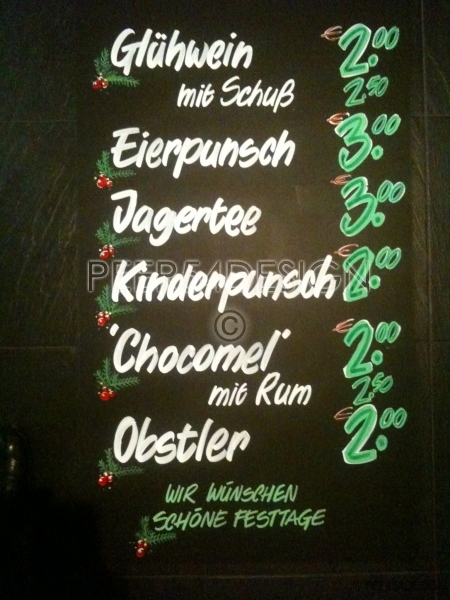 Glühwein € 2.00
mit Schuß 2.50
Eierpunsch € 3.00
Jagertee € 3.00
Kinderpunsch € 2.00
'Chocomel' € 2.00
mit Rum 2.50
Obstler € 2.00
WIR WÜNSCHEN
SCHÖNE FESTTAGE
©